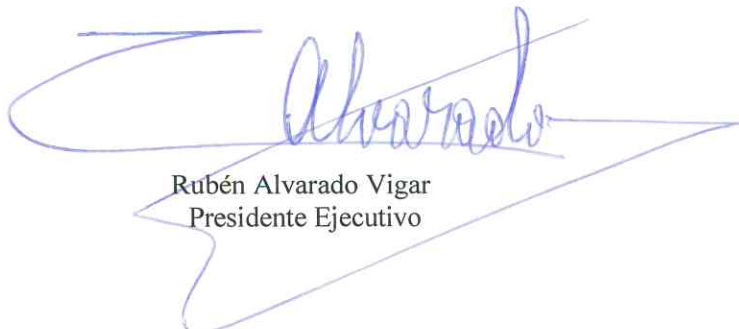 Alvarado
Rubén Alvarado Vigar
Presidente Ejecutivo